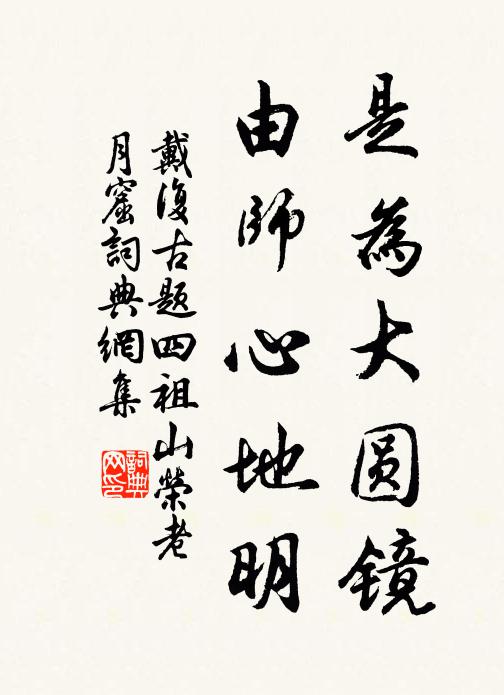 是為大圓鏡
由師心地明
戴復古題四祖山榮老
月窟詞典網集
詞典
网印